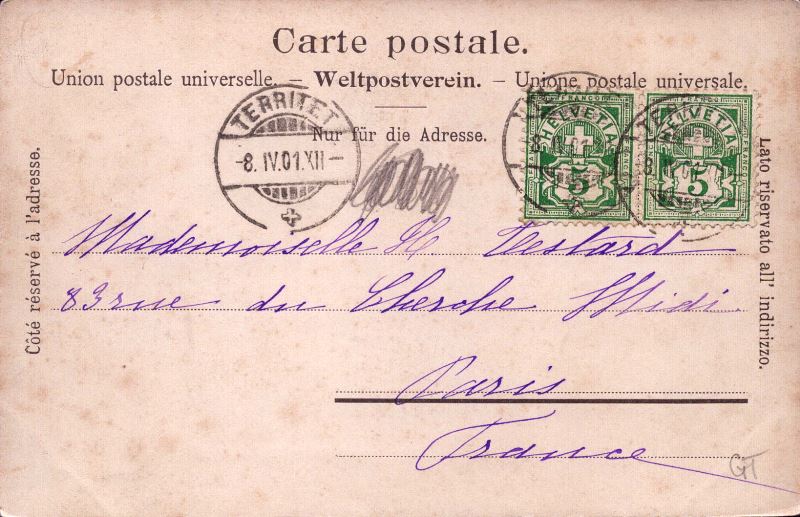 Carte postale.
Union postale universelle. – Weltpostverein. – Unione postale universale.
Nur für die Adresse.
Côté réservé à l'adresse.
Lato riservato all' indirizzo.
TERRITET
-8. IV.01.XII-
FRANCO
HELVETIA
5
FRANCO
HELVETIA
5
Mademoiselle H Testard
83 rue du Cherche Midi.
Paris
France
GT